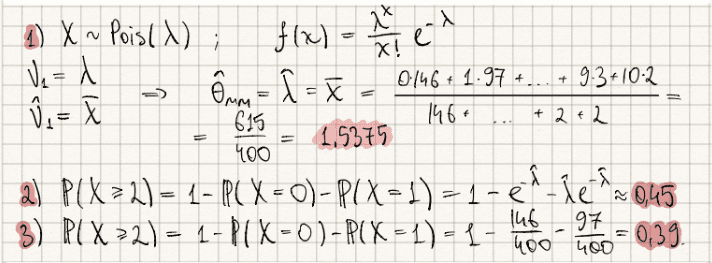 1) X ~ Pois(λ) ; f(x) = λ^x/x! e^-λ
ν₁ = λ
ν̂₁ = X̄ => θ̂_мм = λ̂ = X̄ = (0·146 + 1·97 + ... + 9·3 + 10·2)/(146 + ... + 2 + 2) =
= 615/400 = 1,5375
2) P(X ≥ 2) = 1 - P(X = 0) - P(X = 1) = 1 - e^-λ̂ - λ̂e^-λ̂ ≈ 0,45
3) P(X ≥ 2) = 1 - P(X = 0) - P(X = 1) = 1 - 146/400 - 97/400 = 0,39.